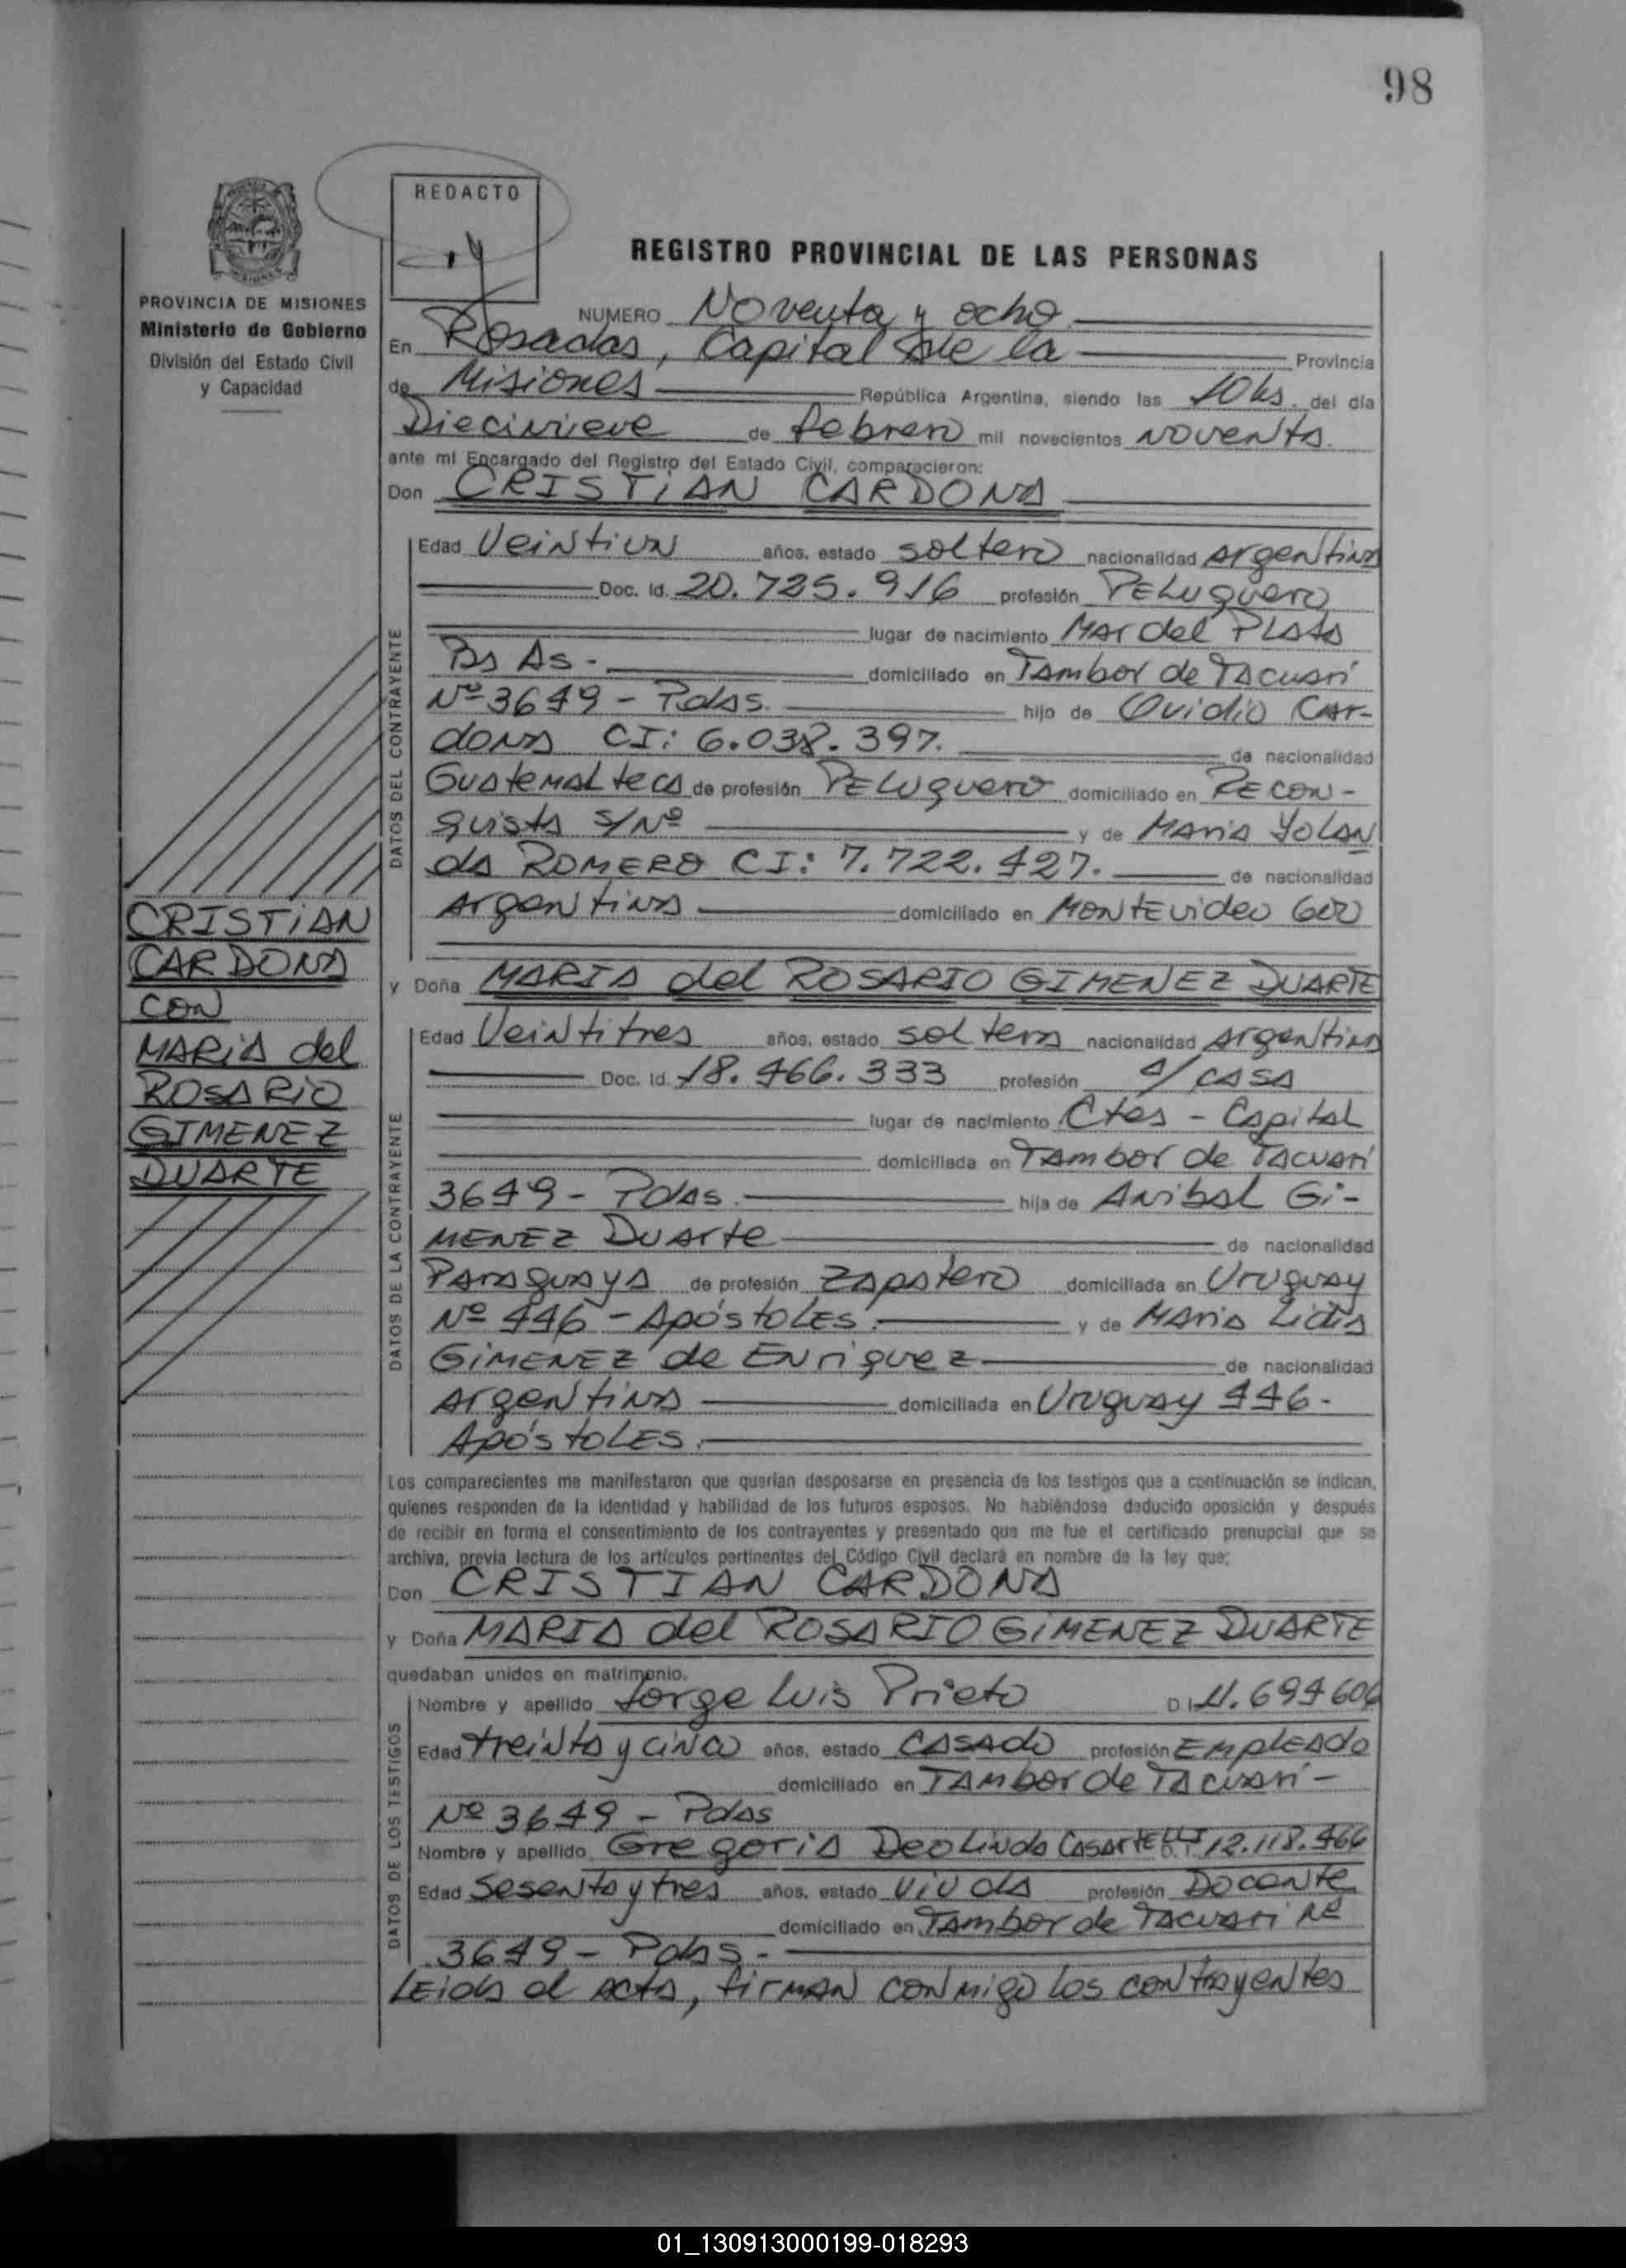 98
REDACTO
REGISTRO PROVINCIAL DE LAS PERSONAS
PROVINCIA DE MISIONES
Ministerio de Gobierno
División del Estado Civil
y Capacidad
NUMERO Noventa y ocho
En Posadas, Capital de la Provincia
de Misiones República Argentina, siendo las 10 hs. del día
Diecinueve de febrero mil novecientos noventa
ante mi Encargado del Registro del Estado Civil, comparecieron:
Don CRISTIAN CARDONA
DATOS DEL CONTRAYENTE
Edad Veintiun años, estado soltero nacionalidad Argentina
Doc. Id. 20.725.916 profesión Peluquero
lugar de nacimiento Mar del Plata
Bs As.- domiciliado en Tambor de Tacuarí
Nº 3649 - Pdas. hijo de Ovidio Car-
dona CI: 6.038.397. de nacionalidad
Guatemalteca de profesión Peluquero domiciliado en Recon-
quista S/Nº y de Maria Yolan
da ROMERO CI: 7.722.427. de nacionalidad
Argentina domiciliado en Montevideo 600
CRISTIAN
CARDONA
CON
MARIA del
ROSARIO
GIMENEZ
DUARTE
y Doña MARIA del ROSARIO GIMENEZ DUARTE
DATOS DE LA CONTRAYENTE
Edad Veintitres años, estado soltera nacionalidad Argentina
Doc. Id. 18.466.333 profesión a/ casa
lugar de nacimiento Ctes - Capital
domiciliada en Tambor de Tacuarí
3649 - Pdas. hija de Anibal Gi-
MENEZ Duarte de nacionalidad
Paraguaya de profesión Zapatero domiciliada en Uruguay
Nº 446 - Apóstoles. y de Maria Lidia
GIMENEZ de Enriquez de nacionalidad
Argentina domiciliada en Uruguay 446.
Apóstoles.
Los comparecientes me manifestaron que querían desposarse en presencia de los testigos que a continuación se indican,
quienes responden de la identidad y habilidad de los futuros esposos. No habiéndose deducido oposición y después
de recibir en forma el consentimiento de los contrayentes y presentado que me fue el certificado prenupcial que se
archiva, previa lectura de los artículos pertinentes del Código Civil declaré en nombre de la ley que:
Don CRISTIAN CARDONA
y Doña MARIA del ROSARIO GIMENEZ DUARTE
quedaban unidos en matrimonio.
DATOS DE LOS TESTIGOS
Nombre y apellido Jorge Luis Prieto D I 11.694606
Edad treinta y cinco años, estado casado profesión Empleado
domiciliado en Tambor de Tacuarí -
Nº 3649 - Pdas
Nombre y apellido Gregoria Deolinda Casartelli D.I. 12.118.466
Edad Sesenta y tres años, estado Viuda profesión Docente
domiciliado en Tambor de Tacuarí Nº
3649 - Pdas.-
Leida el acta, firman conmigo los contrayentes
01_130913000199-018293